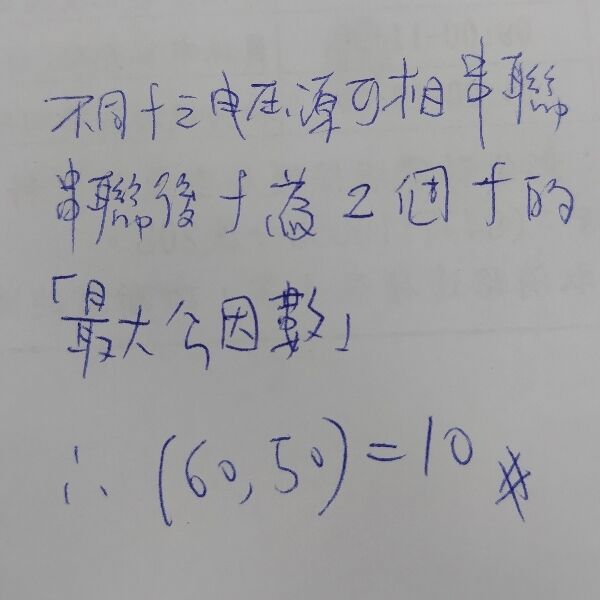 不同f之电压源可相串聯
串聯後f為2個f的
「最大公因數」
∴ (60,50)=10